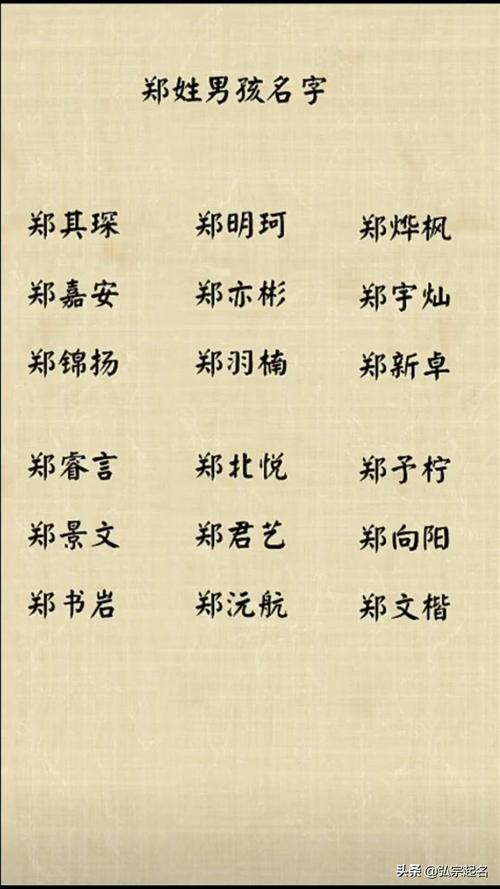 郑姓男孩名字
郑其琛 郑明珂 郑烨枫
郑嘉安 郑亦彬 郑宇灿
郑锦扬 郑羽楠 郑新卓
郑睿言 郑北悦 郑予柠
郑景文 郑君艺 郑向阳
郑书岩 郑沅航 郑文楷
头条 @弘宗起名